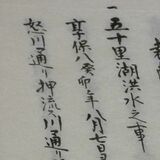 一五十里湖洪水之事
享保八癸卯年八月七日
怒川通り押流川通り